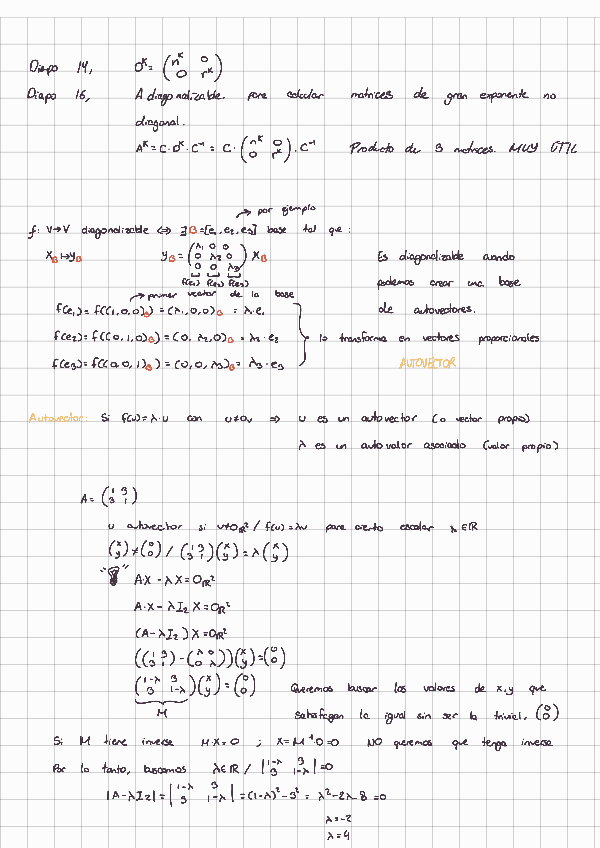 Diapo 14, D^K = (n^K 0 / 0 r^K)
Diapo 16, A diagonalizable. para calcular matrices de gran exponente no
diagonal.
A^K = C·D^K·C^-1 = C·(n^K 0 / 0 r^K)·C^-1 Producto de 3 matrices. MUY ÚTIL
→ por ejemplo
f: V→V diagonalizable ⇔ ∃B=[e1, e2, e3] base tal que:
X_B ↦ y_B y_B = (λ1 0 0 / 0 λ2 0 / 0 0 λ3) X_B Es diagonalizable cuando
f(e1) f(e2) f(e3) podemos crear una base
→ primer vector de la base
f(e1) = f((1,0,0)_B) = (λ1,0,0)_B = λ1·e1 de autovectores.
f(e2) = f((0,1,0)_B) = (0,λ2,0)_B = λ2·e2 lo transforma en vectores proporcionales
f(e3) = f((0,0,1)_B) = (0,0,λ3)_B = λ3·e3 AUTOVECTOR
Autovector: Si f(u) = λ·u con u≠0v ⇒ u es un autovector (o vector propio)
λ es un autovalor asociado (valor propio)
A = (1 3 / 3 1)
u autovector si u≠0_ℝ² / f(u) = λu para cierto escalar λ∈ℝ
(x / y) ≠ (0 / 0) / (1 3 / 3 1)(x / y) = λ(x / y)
" " A·X - λX = 0_ℝ²
A·X - λI2 X = 0_ℝ²
(A - λI2) X = 0_ℝ²
((1 3 / 3 1) - (λ 0 / 0 λ))(x / y) = (0 / 0)
(1-λ 3 / 3 1-λ)(x / y) = (0 / 0) Queremos buscar los valores de x,y que
M satisfagan la igual sin ser la trivial, (0 / 0)
Si M tiene inversa M·X = 0 ; X = M^-1·0 = 0 NO queremos que tenga inversa
Por lo tanto, buscamos λ∈ℝ / |1-λ 3 / 3 1-λ| = 0
|A - λI2| = |1-λ 3 / 3 1-λ| = (1-λ)² - 3² = λ² - 2λ - 8 = 0
λ = -2
λ = 4